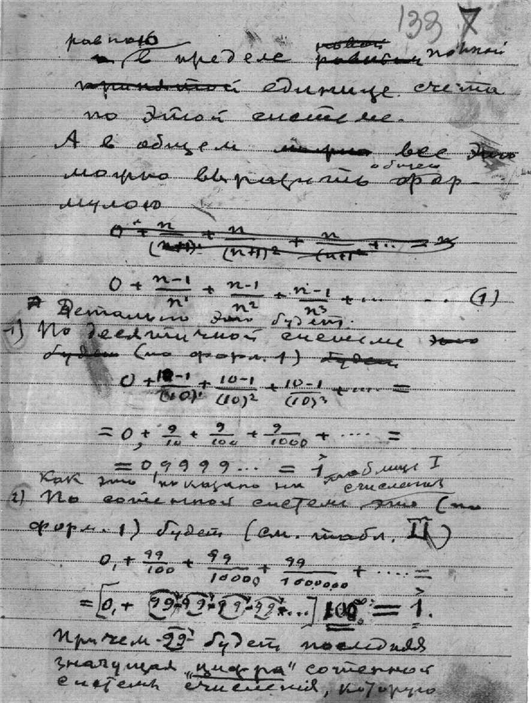 133 7
равною
в пределе новой полной
принятой единице счета
по этой системе.
А в общем можно все это
можно выразить общей фор-
мулою
0 + n/(n+1)¹ + n/(n+1)² + n/(n+1)³ + ... = n
0 + n-1/n¹ + n-1/n² + n-1/n³ + ... - - - (1)
Детально это будет:
1) По десятичной системе это
будет (по форм. 1) будет
0 + 10-1/(10)¹ + 10-1/(10)² + 10-1/(10)³ + .... =
= 0, + 9/10 + 9/100 + 9/1000 + ..... =
= 0,9999... = 1
Как это показано на таблице I
счисления
2) По сотенной системе это (по
форм. 1) будет (см. табл. II)
0, + 99/100 + 99/10000 + 99/1000000 + .... =
= [0, + 99-99-99-99-...] 100 = 1.
Причем 99 будет последняя
значущая „цифра" сотенной
системы счисления, которую